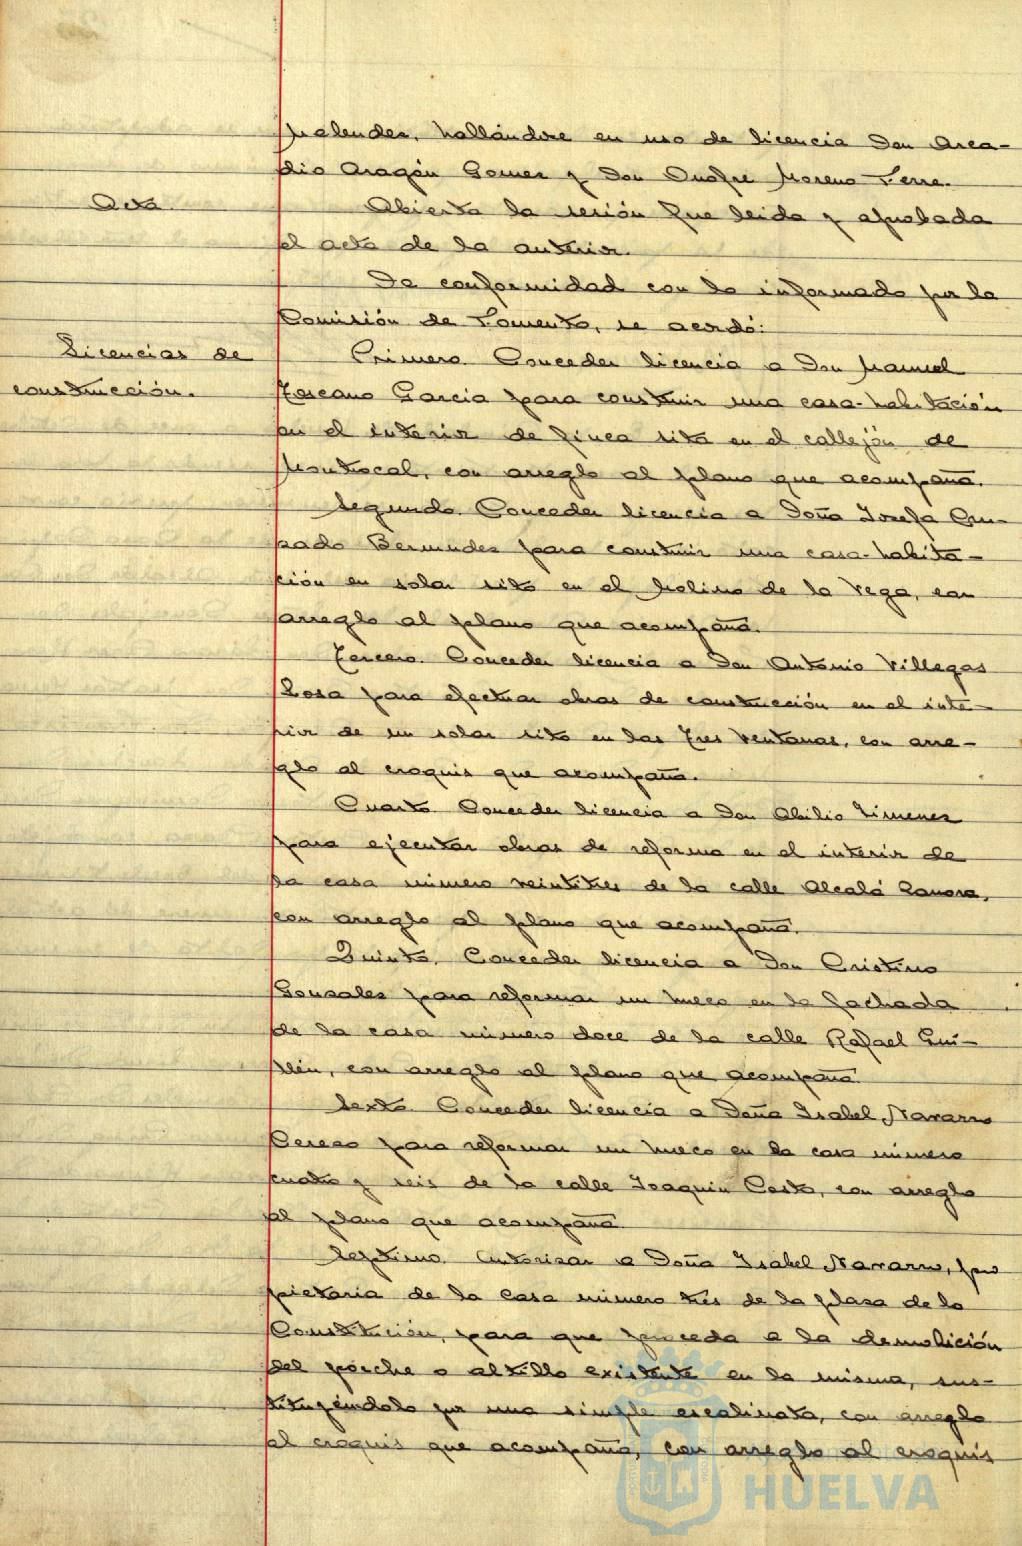 Melendez, hallándose en uso de licencia Don Arca-
dio Aragón Gomez y Don Onofre Moreno Terre.
Acta. Abierta la sesión fue leida y aprobada
el acta de la anterior.
De conformidad con lo informado por la
Comisión de Fomento, se acordó:
Licencias de
construcción.
Primero. Conceder licencia a Don Manuel
Toscano Garcia para construir una casa-habitación
en el interior de finca sita en el callejón de
Montrocal, con arreglo al plano que acompaña.
Segundo. Conceder licencia a Doña Josefa
Bermudez para construir una casa-habita-
ción en solar sito en el Molino de la Vega, con
arreglo al plano que acompaña.
Tercero. Conceder licencia a Don Antonio Villegas
Sosa para efectuar obras de construcción en el inte-
rior de un solar sito en las Tres Ventanas, con arre-
glo al croquis que acompaña.
Cuarto. Conceder licencia a Don Abilio Jimenez
para ejecutar obras de reforma en el interior de
la casa número veintitres de la calle Alcalá Zamora,
con arreglo al plano que acompaña.
Quinto. Conceder licencia a Don Cristino
Gonzalez para reformar un hueco en la fachada
de la casa número doce de la calle Rafael Gui-
llén, con arreglo al plano que acompaña.
Sexto. Conceder licencia a Doña Isabel Navarro
Cerezo para reformar un hueco en la casa número
cuatro y seis de la calle Joaquin Costa, con arreglo
al plano que acompaña.
Septimo. Autorizar a Doña Isabel Navarro, pro
pietaria de la casa número tres de la plaza de la
Constitución, para que proceda a la demolición
del porche o altillo existente en la misma, sus-
tituyéndolo por una simple escalinata, con arreglo
al croquis que acompaña, con arreglo al croquis
HUELVA